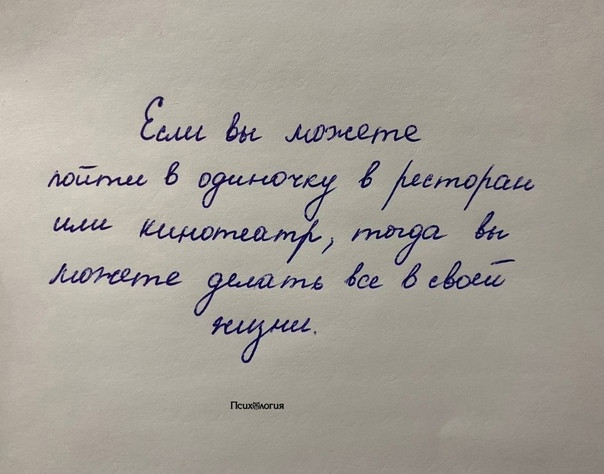 Если вы можете
пойти в одиночку в ресторан
или кинотеатр, тогда вы
можете делать все в своей
жизни.
Психология